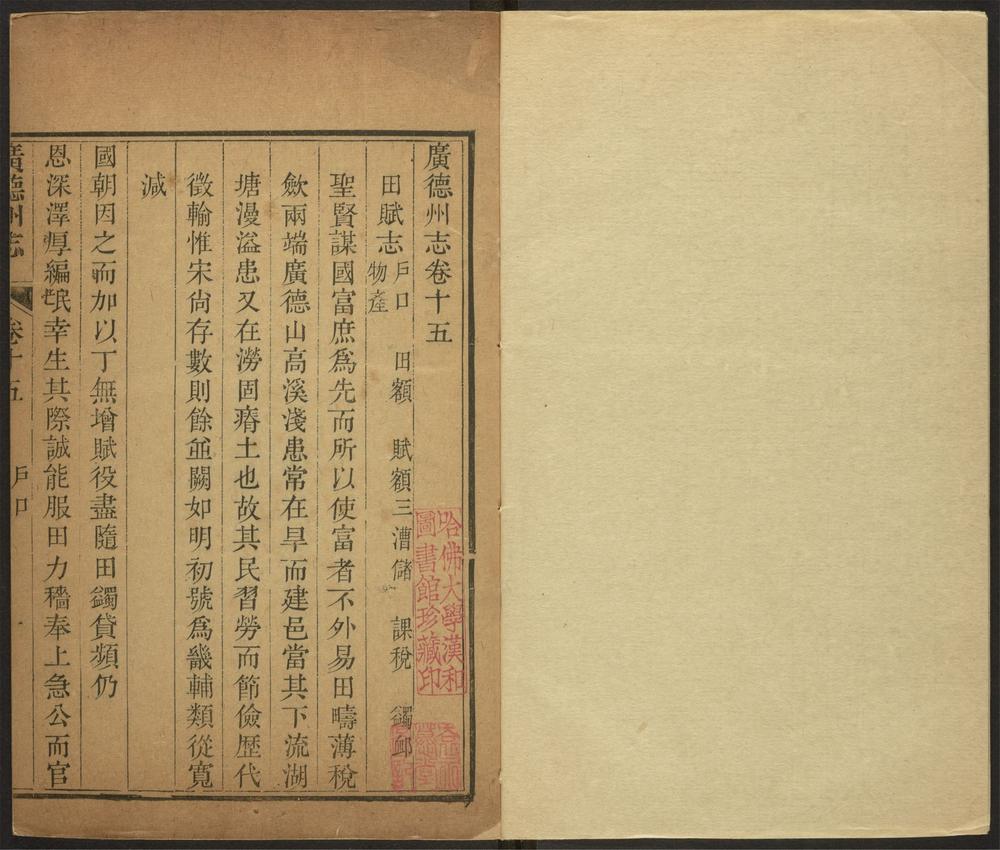 廣德州志卷十五
田賦志 戶口 田額 賦額三 漕儲 課稅 蠲卹
物產
聖賢謀國富庶爲先而所以使富者不外易田疇薄稅
歛兩端廣德山高溪淺患常在旱而建邑當其下流湖
塘漫溢患又在澇固瘠土也故其民習勞而節儉歷代
徵輸惟宋尙存數則餘並闕如明初號爲畿輔類從寬
減
國朝因之而加以丁無增賦役盡隨田蠲貸頻仍
恩深澤厚編氓幸生其際誠能服田力穡奉上急公而官
廣德州志 卷十五 戶口
哈佛大學漢和
圖書館珍藏印